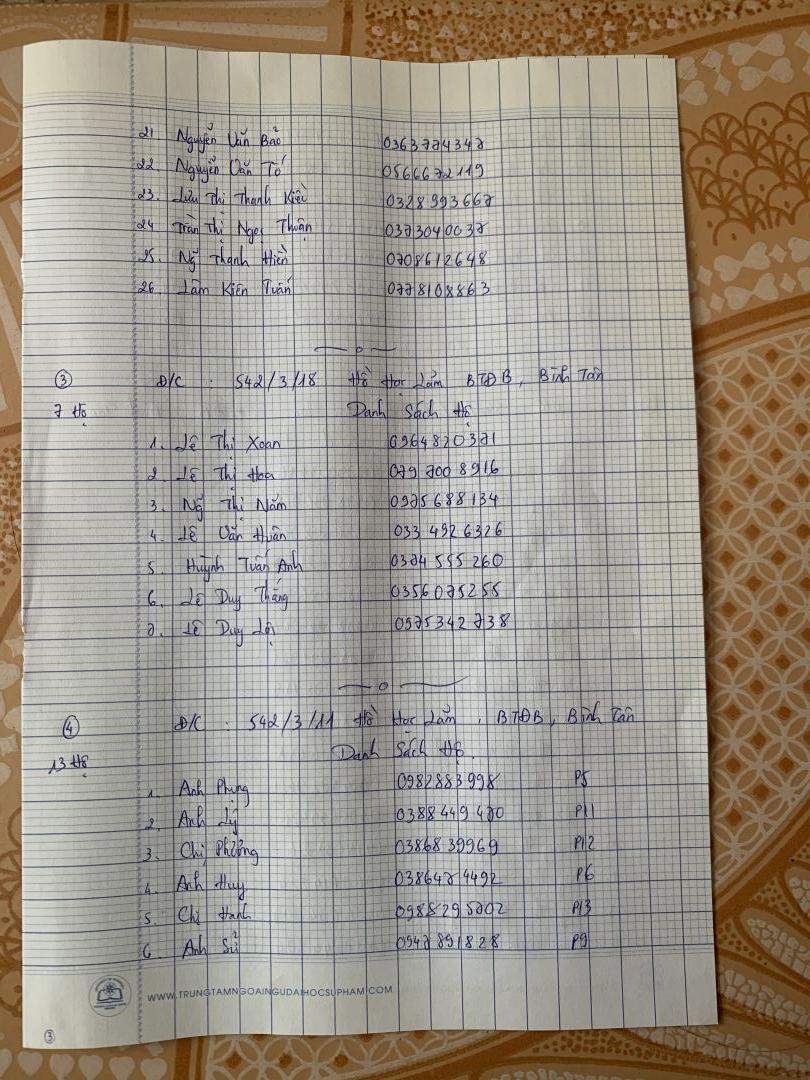 21 Nguyễn Văn Bảo 0363774347
22. Nguyễn Văn Tố 0566672119
23. Lưu Thị Thanh Kiều 0328993667
24 Trần Thị Ngọc Thuận 0373040037
25. Ng̃ Thanh Hiền 0708612648
26 Lâm Kiên Tuấn 0778108863
③ Đ/C : 542/3/18 Hồ Học Lãm BTĐB, Bình Tân
7 Hộ Danh Sách Hộ
1. Lê Thị Xoan 0964820371
2. Lê Thị Hoa 079 700 8916
3. Ng̃ Thị Năm 0975688134
4. Lê Văn Huân 033 492 6326
5. Huỳnh Tuấn Anh 0374 555 260
6. Lê Duy Thắng 0356075255
7. Lê Duy Lợi 0975342738
④ Đ/C : 542/3/11 Hồ Học Lãm, BTĐB, Bình Tân
13 Hộ Danh Sách Hộ.
1. Anh Phụng 0982883998 P5
2. Anh Lý 0388449470 P11
3. Chị Phượng 0386839969 P12
4. Anh Huy 0386474492 P6
5. Chị Hạnh 0988295702 P13
6 Anh Sử 0947891828 P9
WWW.TRUNGTAMNGOAINGUDAIHOCSUPHAM.COM
③